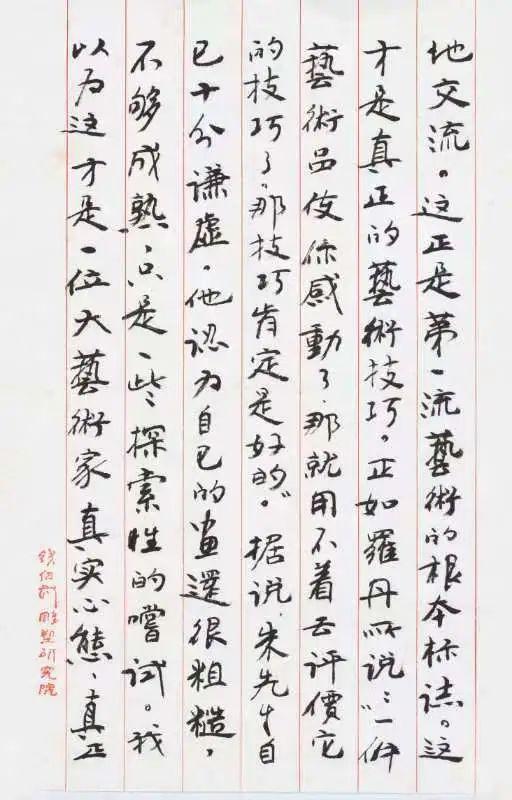 地交流。这正是第一流藝術的根本标誌。这
才是真正的藝術技巧。正如羅丹所说：“一件
藝術品使你感動了，那就用不着去评價它
的技巧了。那技巧肯定是好的。”据说，朱先生自
已十分谦虚，他認为自已的画還很粗糙，
不够成熟，只是一些探索性的嚐试。我
以为这才是一位大藝術家真实心態、真正
钱绍武雕塑研究院